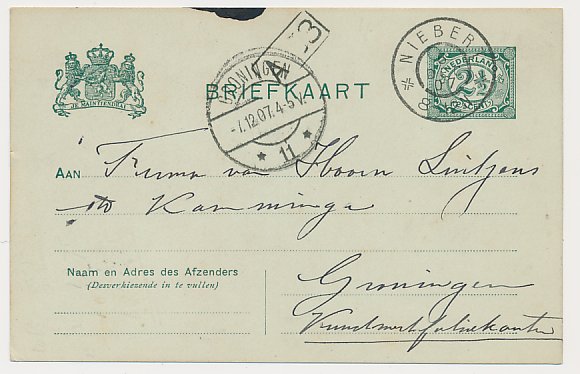 A-3
NIEBERT
GRONINGEN
NEDERLAND
2½
CENT
JE MAINTIENDRAI
BRIEFKAART
-7.12.07.4-5V.
11
AAN Firma van Hoorn Luitjens
Kamminga
Naam en Adres des Afzenders
(Desverkiezende in te vullen)
Groningen